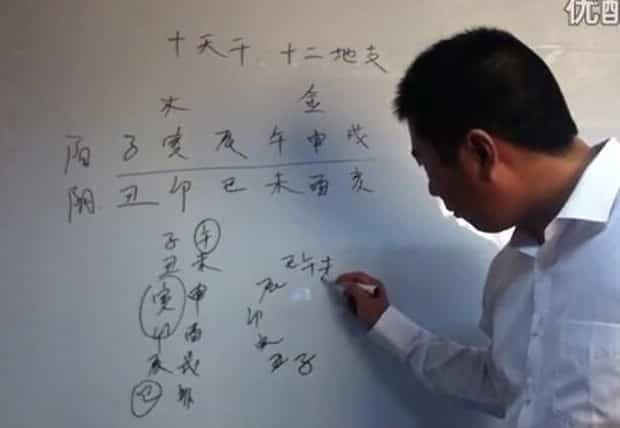 优酷
十天干 十二地支
木 金
阳 子 寅 辰 午 申 戌
阴 丑 卯 巳 未 酉 亥
子 午
丑 未
寅 申
卯 酉
辰 戌
巳
巳午未
辰
卯
丑子